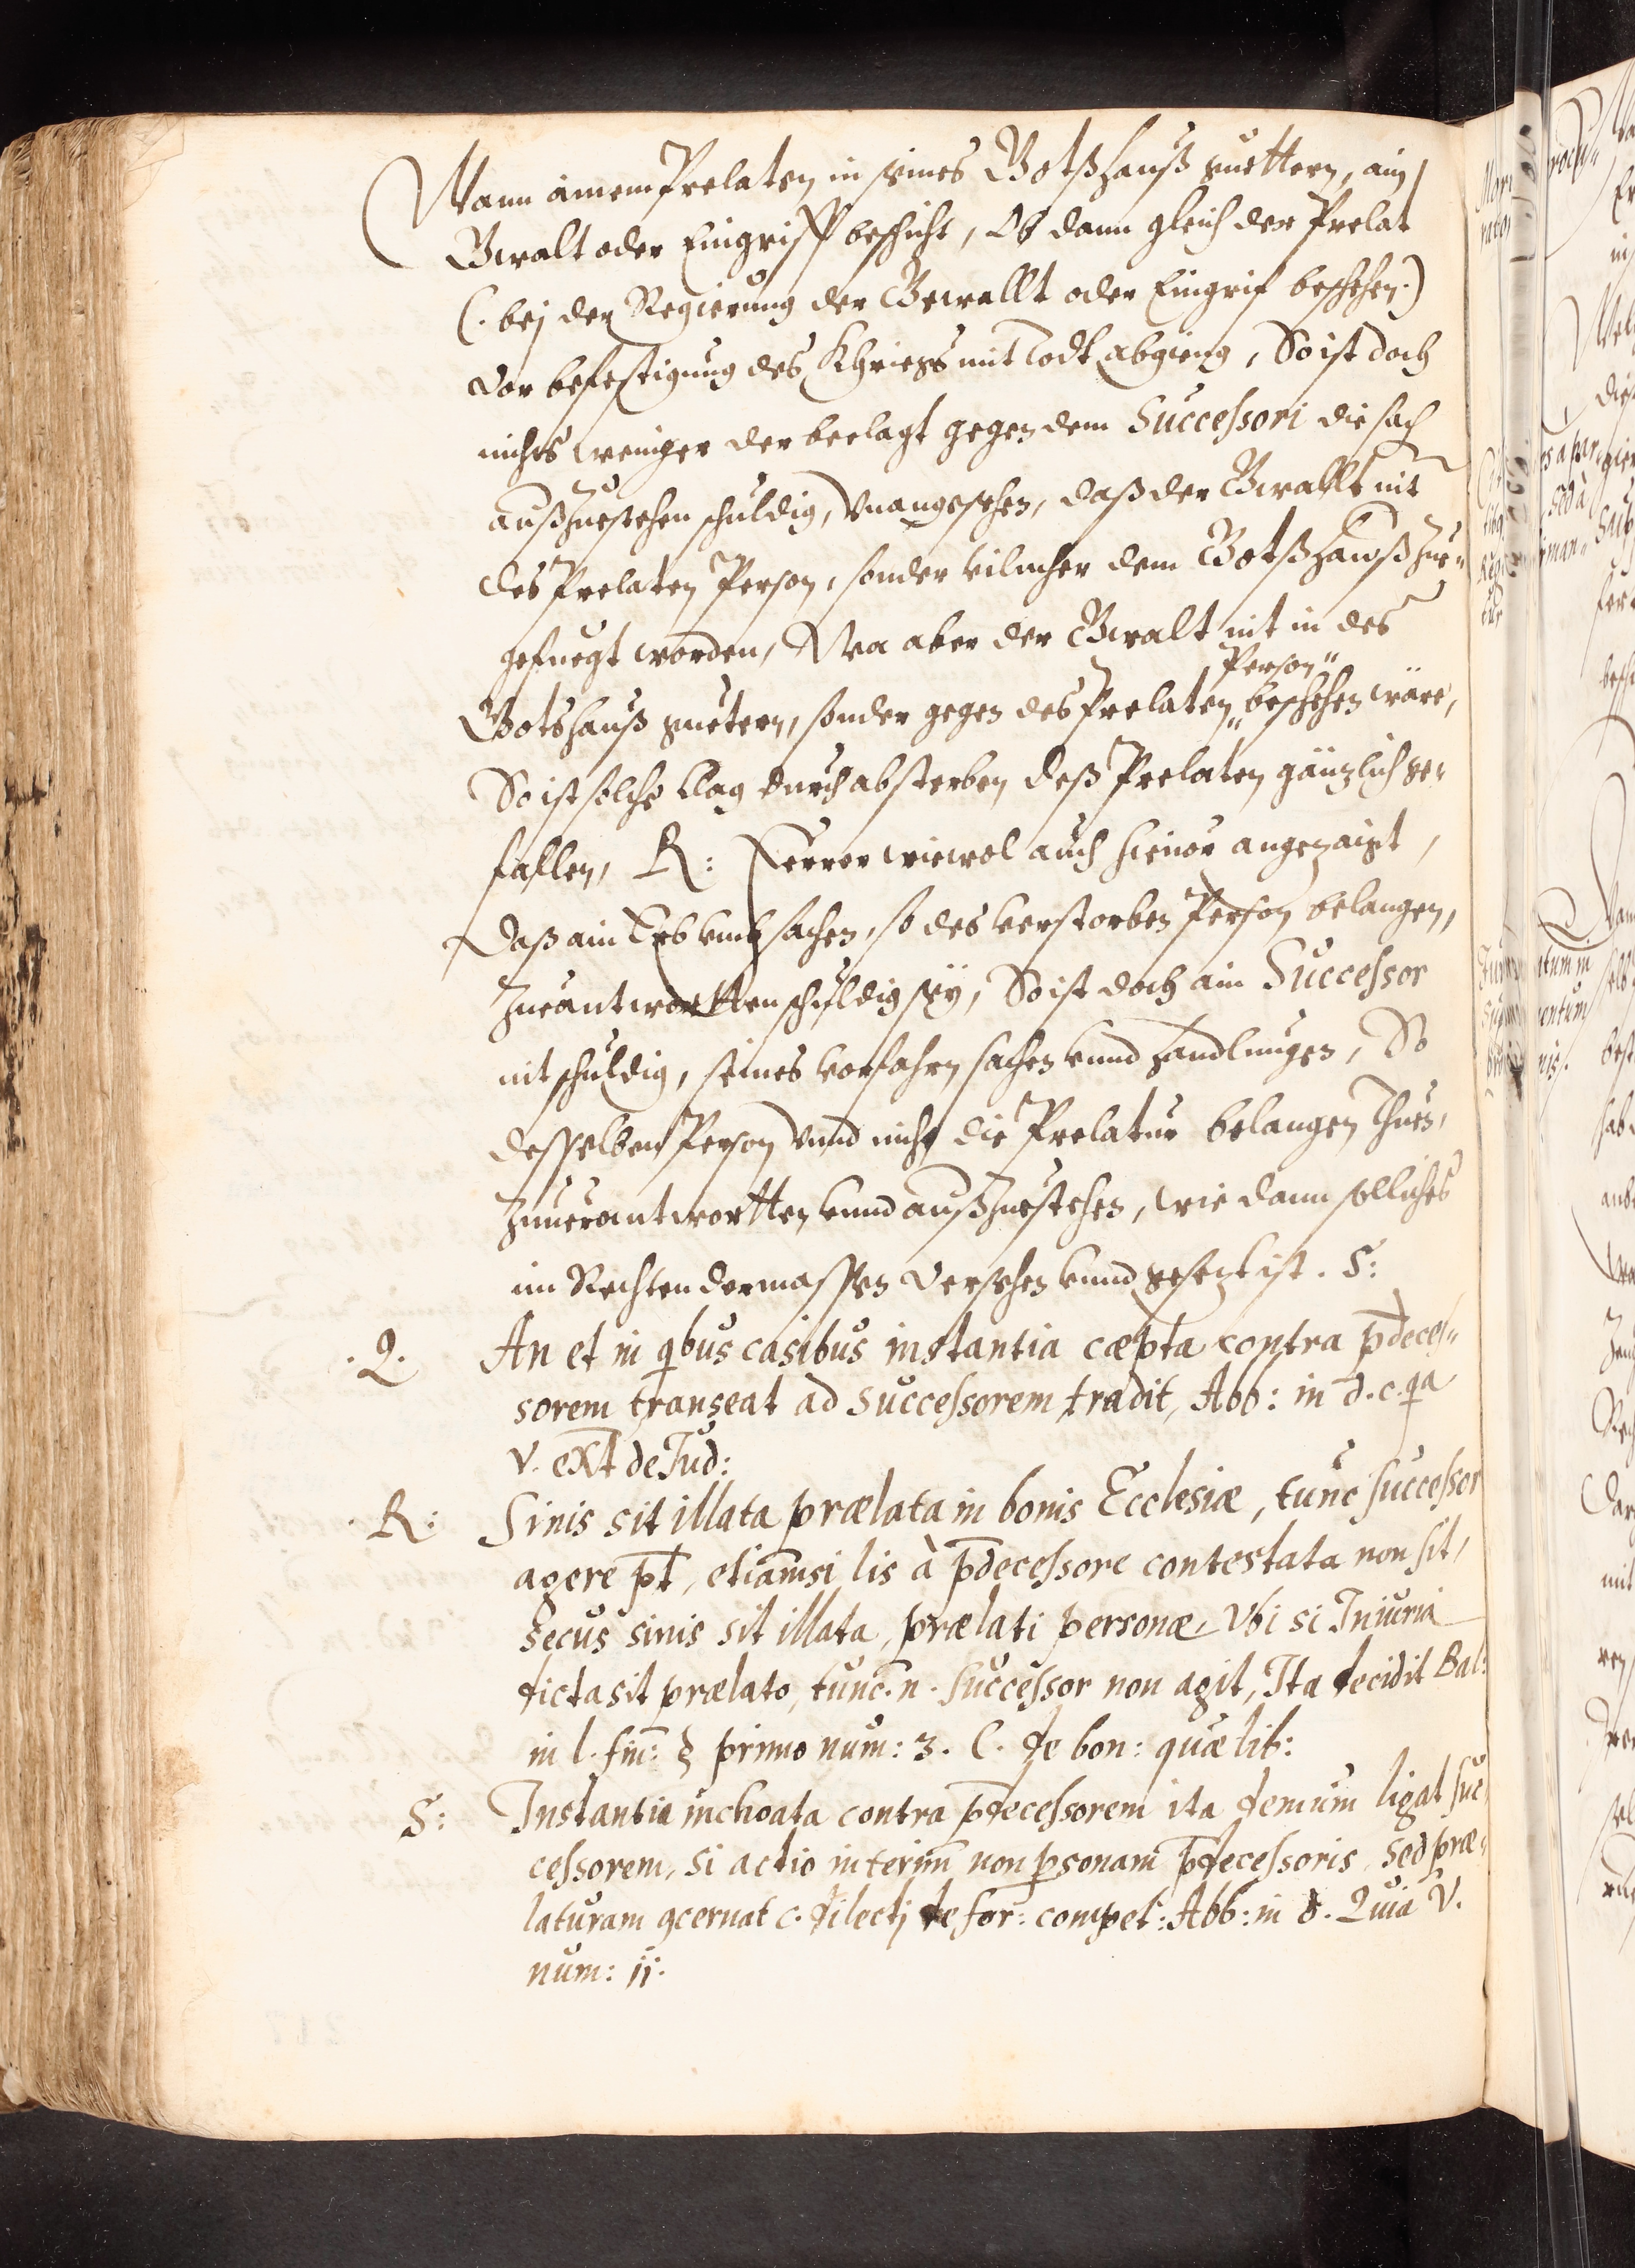 Wann ainem Prelaten in seines Gotßhauß guettern, ain
Gwalt oder Eingriff beschicht, Ob dann gleich der Prelat
(. bej der Regierung der Gewallt oder Eingrif beschehen .)
vor befestigung des Khriegs mit Todt abgieng, So ist doch
nichts weniger der beclagt gegen dem Successori die sach
außzuestehen schuldig, Vnangesehen, daß der Gwallt nit
des Prelaten Person, sonder vilmher dem Gotßhawß zue-
gefuegt worden, Wa aber der Gwalt nit in des
Person"
Gotshauß guetern, sonder gegen des Prelaten" beschehen wäre,
So ist solche Clag durch absterben deß Prelaten gänzlich ge-
fallen, R: Ferrer wiewol auch hieuor angezaigt,
Daß ain Erb vmb sachen, so des verstorben Person belangen,
Zueantwortten schuldig sey, So ist doch ain Successor
nit schuldig, seines vorfahrn sachen vnnd handlungen, So
desselben Person vnnd nicht die Prelatur belangen thuen,
Zuuerantwortten vnnd außzuestehen, wie dann solliches
im Rechten dermassen versehen vnnd gesezt ist. S:
.Q. An et in qbus casibus instantia cæpta contra p̄deces"
sorem transeat ad successorem tradit, Abb: in d. c. qa
V. ext de Jud:
.R: Sinis sit illata prælata in bonis Ecclesiæ, tunc successor
agere pt̄, etiam̄si lis à p̄decessore contestata non sit,
Secus sinis sit illata, prælati personæ, Vbi si Iniuria
dicta sit prælato, tunc. n. successor non agit, Ita decidit Bal:
in l. fin: § primo num: 3. C. de bon: quæ lib:
S: Instantia inchoata contra p̄decessorem ita demum ligat suc-
cessorem, si actio interim̄ non psonam p̄decessoris, sed præ-
laturam 9cernat c. dilectj de for: compet: Abb: in d. Quia V.
num: ii.